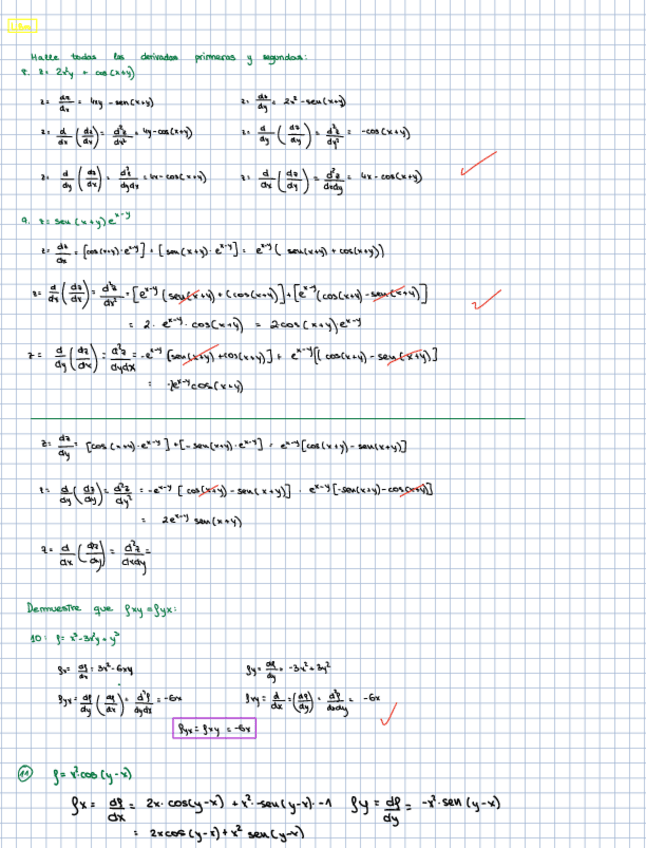 Halle todas las derivadas primeras y segundas:
8. z = 2x²y + cos(x+y)
z = dz/dx = 4xy - sen(x+y)
z: dz/dy = 2x² - sen(x+y)
z = d/dx (dz/dx) = d²z/dx² = 4y - cos(x+y)
z: d/dy (dz/dy) = d²z/dy² = -cos(x+y)
z: d/dy (dz/dx) = d²z/dydx = 4x - cos(x+y)
z: d/dx (dz/dy) = d²z/dxdy = 4x - cos(x+y)
9. z = sen(x+y)e^x-y
z = dz/dx = [cos(x+y)·e^x-y] + [sen(x+y)·e^x-y] = e^x-y (sen(x+y) + cos(x+y))
z = d/dx (dz/dx) = d²z/dx² = [e^x-y (sen(x+y) + (cos(x+y)] + [e^x-y (cos(x+y) - sen(x+y)]
= 2· e^x-y · cos(x+y) = 2cos(x+y)e^x-y
z = d/dy (dz/dx) = d²z/dydx = -e^x-y [sen(x+y) + cos(x+y)] + e^x-y [( cos(x+y) - sen(x+y)]
= e^x-y cos(x+y)
z = dz/dy = [cos(x+y)·e^x-y] + [-sen(x+y)·e^x-y] = e^x-y [cos(x+y) - sen(x+y)]
z = d/dy (dz/dy) = d²z/dy² = -e^x-y [cos(x+y) - sen(x+y)] · e^x-y [-sen(x+y) - cos(x+y)]
= 2e^x-y sen(x+y)
z = d/dx (dz/dy) = d²z/dxdy =
Demuestre que fxy = fyx:
10: f = x³ - 3x²y + y³
fx = df/dx = 3x² - 6xy
fy = df/dy = -3x² + 3y²
fyx = df/dy (df/dx) = d²f/dydx = -6x
fxy = d/dx = (df/dy) = d²f/dxdy = -6x
fyx = fxy = -6x
11 f = x² cos(y-x)
fx = df/dx = 2x · cos(y-x) + x² · -sen(y-x) · -1
fy = df/dy = -x² · sen(y-x)
= 2xcos(y-x) + x² sen(y-x)